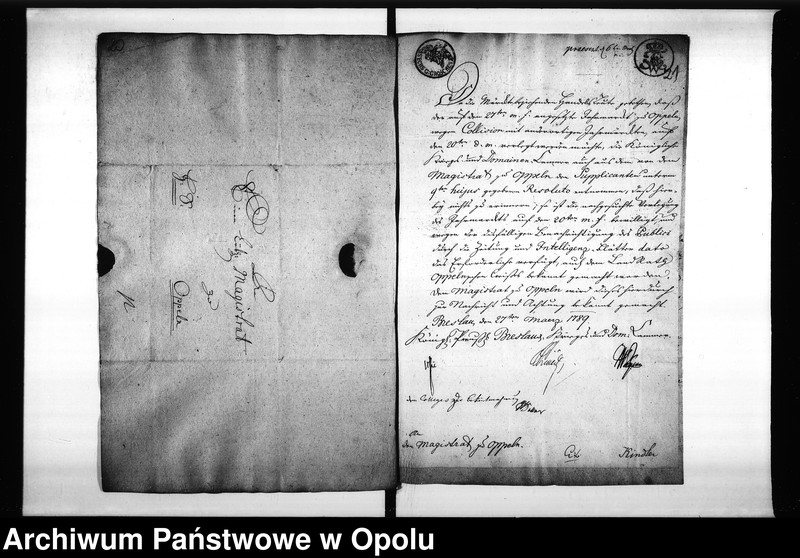 Da die Märkteziehenden Handels Leute gebethen, daß
der auf den 27ten m. f. angesetzte Jahrmarkt zu Oppeln,
wegen Collision mit anderweitigen Jahrmärkten, auf
den 20ten d. m. verlegt werden möchte, die Königliche
Kriegs und Domainen Cammer auch aus dem von dem
Magistrat zu Oppeln den Supplicanten unterm
9ten hujus gegebenen Resoluto entnommen, daß hier-
bey nichts zu erinnern; so ist die nachgesuchte Verlegung
des Jahrmarkts auf den 20ten m. f. bewilliget, und
wegen der diesfälligen Benachrichtigung des Publici
durch die Zeitung und Intelligenz Blätter dato
das Erforderliche verfügt, auch dem Land Rath
Oppelnschen Creises bekannt gemacht worden.
Dem Magistrat zu Oppeln wird dieses hierdurch
zur Nachricht und Achtung bekannt gemacht.
Breslau, den 27ten Maerz 1789.
Königl. Preuß. Breslausche Krieges und Dom. Cammer.
den Magistrat zu Oppeln.
Cito
Kindler
Magistrat
zu
Oppeln
Archiwum Państwowe w Opolu